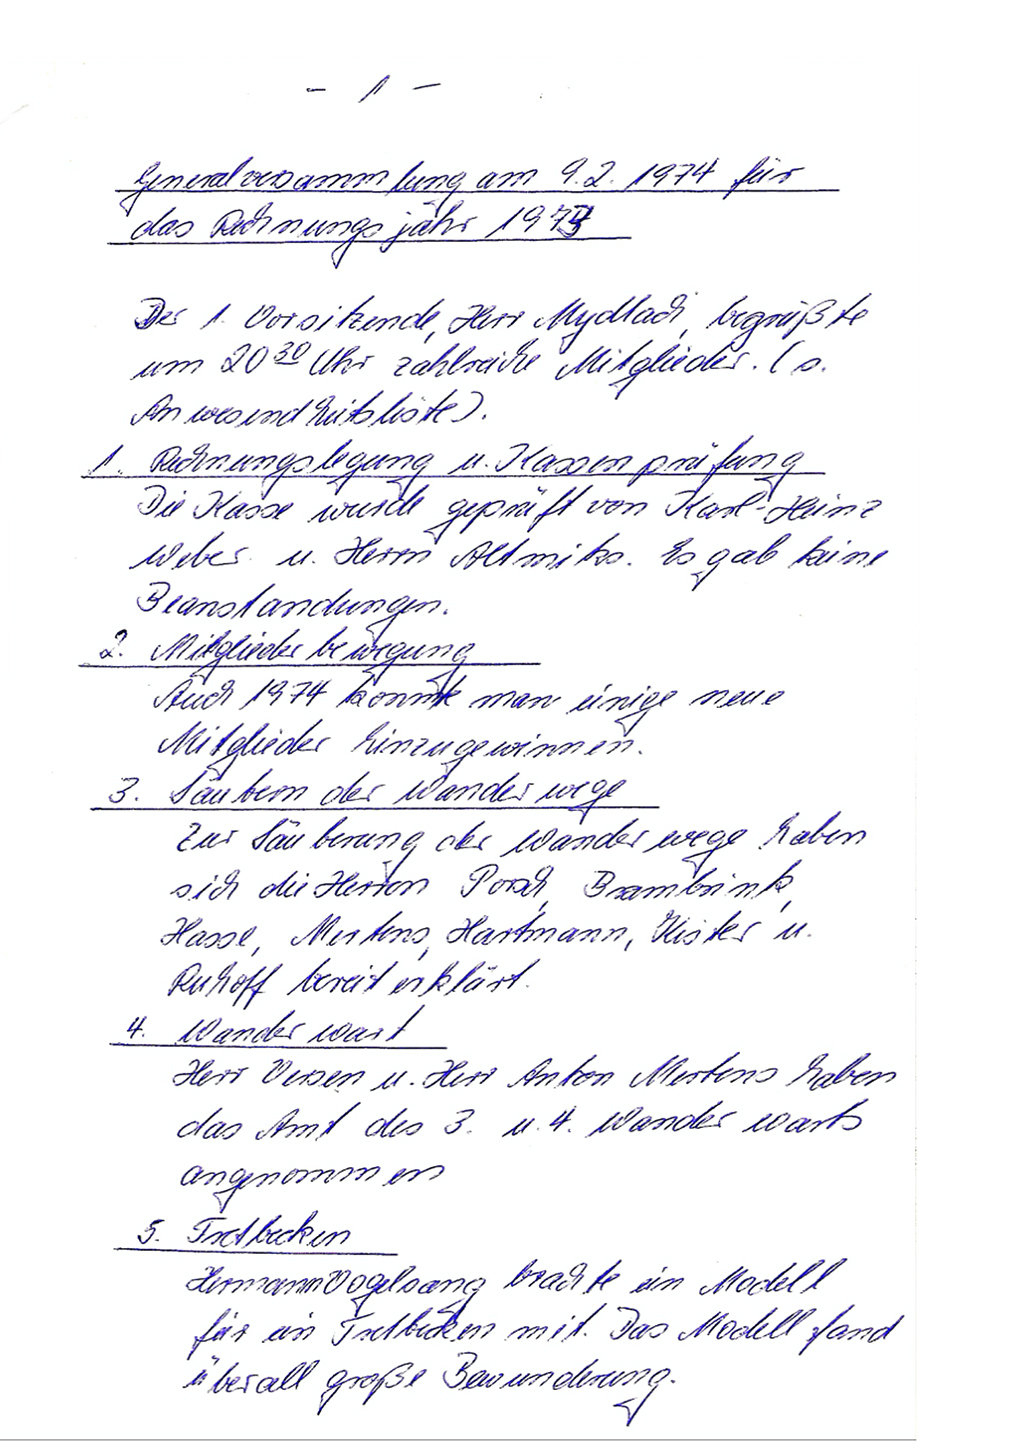 - 1 -
Generalversammlung am 9.2. 1974 für
das Rechnungsjahr 1973
Der 1. Vorsitzende, Herr Mydlach, begrüßte
um 20 30 Uhr zahlreiche Mitglieder. (s.
Anwesendheitsliste).
1. Rechnungslegung u. Kassenprüfung
Die Kasse wurde geprüft von Karl-Heinz
Weber u. Herrn Altmiks. Es gab keine
Beanstandungen.
2. Mitgliederbewegung
Auch 1974 konnte man einige neue
Mitglieder hinzugewinnen.
3. Säubern der Wanderwege
Zur Säuberung der Wanderwege haben
sich die Herren Porsch, Brambrink,
Hasse, Mertens, Hartmann, Küster u.
Ruhoff bereit erklärt.
4. Wanderwart
Herr Versen u. Herr Anton Mertens haben
das Amt des 3. u. 4. Wanderwarts
angenommen
5. Tretbecken
Hermann Vogelsang brachte ein Modell
für ein Tretbecken mit. Das Modell fand
überall große Bewunderung.